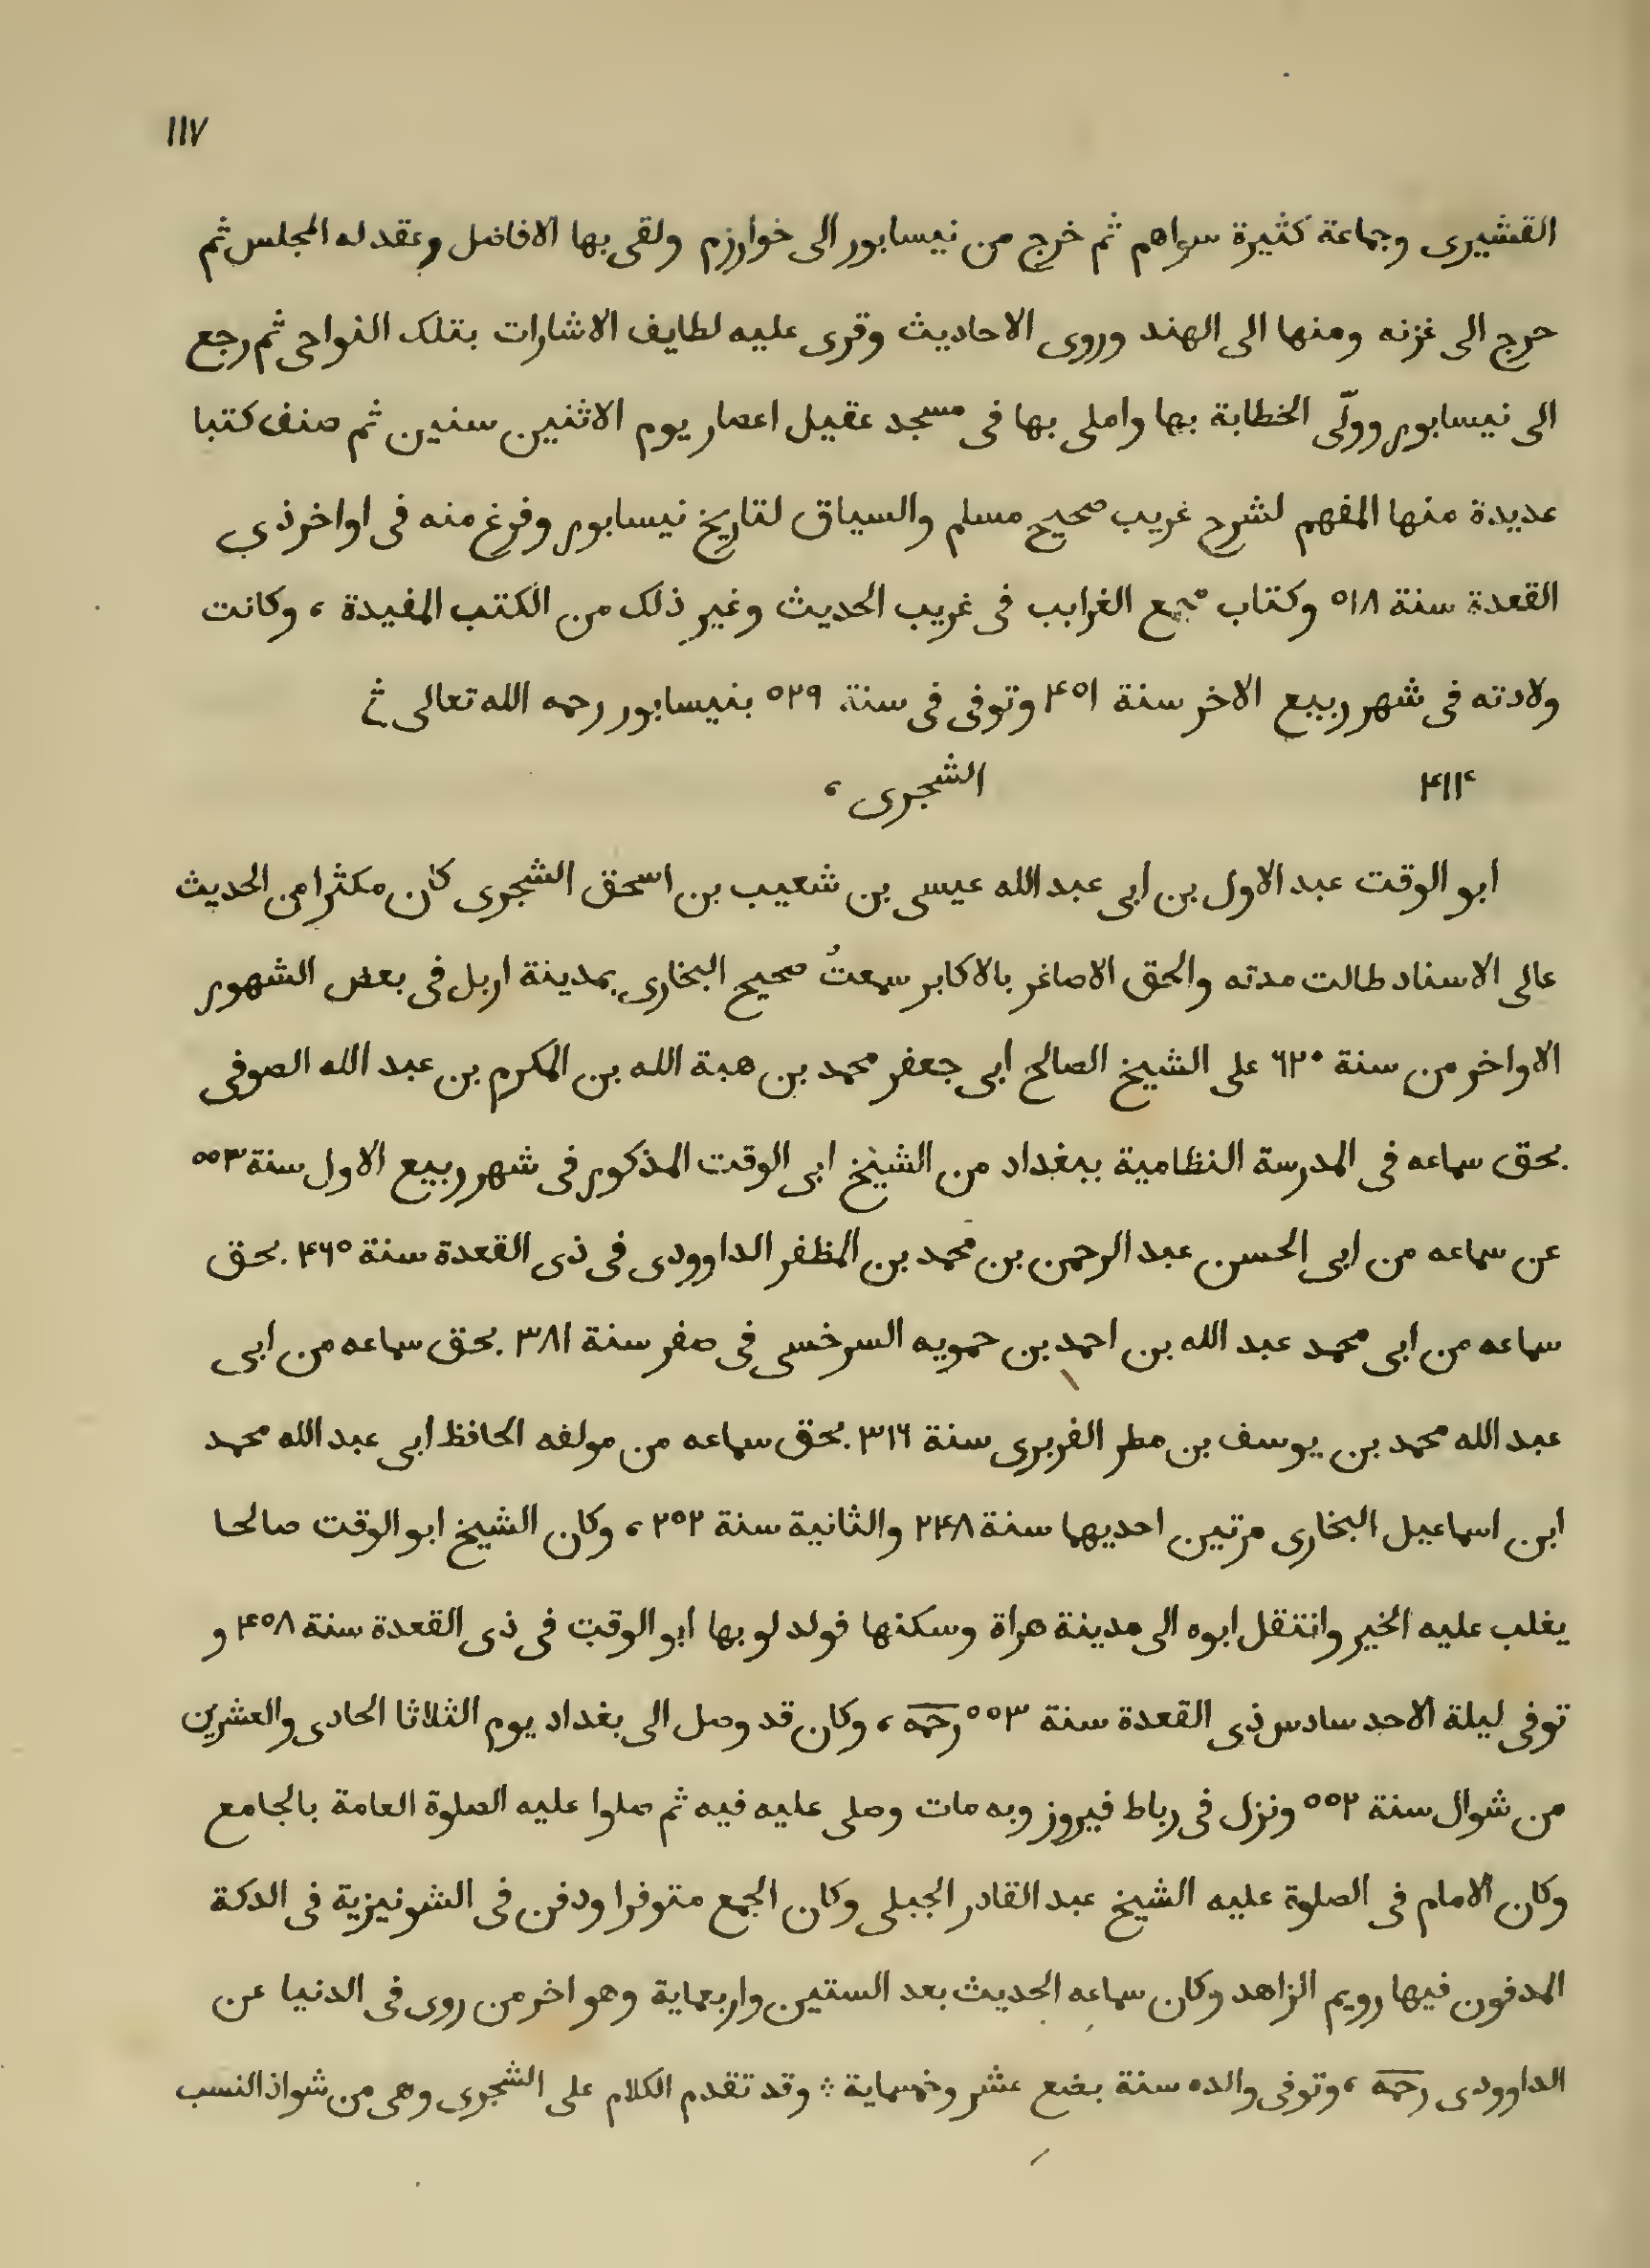 ١١٧
القشيرى وجماعة كثيرة سواهم ثم خرج من نيسابور الى خوارزم ولقى بها الافاضل وعقد له المجلس ثم
حرج الى غزنه ومنها الى الهند وروى الاحاديث وقرى عليه لطايف الاشارات بتلك النواحى ثم رجع
الى نيسابور وولّى الخطابة بها واملى بها فى مسجد عقيل اعصار يوم الاثنين سنين ثم صنف كتبا
عديدة منها المفهم لشرح غريب صحيح مسلم والسياق لتاريخ نيسابور وفرغ منه فى اواخر ذي
القعدة سنة ٥١٨ وكتاب مجمع الغرايب فى غريب الحديث وغير ذلك من الكتب المفيدة ، وكانت
ولادته فى شهر ربيع الاخر سنة ٤٥١ وتوفى فى سنة ٥٢٩ بنيسابور رحمه الله تعالى
٤١١ الشجرى ،
ابو الوقت عبد الاول بن ابى عبد الله عيسى بن شعيب بن اسحق الشجرى كان مكثرا من الحديث
عالى الاسناد طالت مدته والحق الاصاغر بالاكابر سمعتُ صحيح البخارى بمدينة اربل فى بعض الشهور
الاواخر من سنة ٦٢٠ على الشيخ الصالح ابى جعفر محمد بن هبة الله بن المكرم بن عبد الله الصوفى
بحق سماعه فى المدرسة النظامية ببغداد من الشيخ ابى الوقت المذكور فى شهر ربيع الاول سنة ٥٥٣
عن سماعه من ابى الحسن عبد الرحمن بن محمد بن المظفر الداوودى فى ذى القعدة سنة ٤٦٥ بحق
سماعه من ابى محمد عبد الله بن احمد بن حمويه السرخسى فى صفر سنة ٣٨١ بحق سماعه من ابى
عبد الله محمد بن يوسف بن مطر الفربرى سنة ٣١٦ بحق سماعه من مولفه الحافظ ابى عبد الله محمد
ابن اسماعيل البخارى مرتين احديهما سنة ٢٤٨ والثانية سنة ٢٥٢ ، وكان الشيخ ابو الوقت صالحا
يغلب عليه الخير وانتقل ابوه الى مدينة هراة وسكنها فولد لو بها ابو الوقت فى ذى القعدة سنة ٤٥٨ و
توفى ليلة الاحد سادس ذى القعدة سنة ٥٥٣ رحمه ، وكان قد وصل الى بغداد يوم الثلاثا الحادى والعشرين
من شوال سنة ٥٥٢ ونزل فى رباط فيروز وبه مات وصلى عليه فيه ثم صلوا عليه الصلوة العامة بالجامع
وكان الامام فى الصلوة عليه الشيخ عبد القادر الجبلى وكان الجمع متوفرا ودفن فى الشونيزية فى الدكة
المدفون فيها رويم الزاهد وكان سماعه الحديث بعد الستين واربعماية وهو اخر من روى فى الدنيا عن
الداوودى رحمه ، وتوفى والده سنة بضع عشر وخمسماية ؞ وقد تقدم الكلام على الشجرى وهى من شواذ النسب